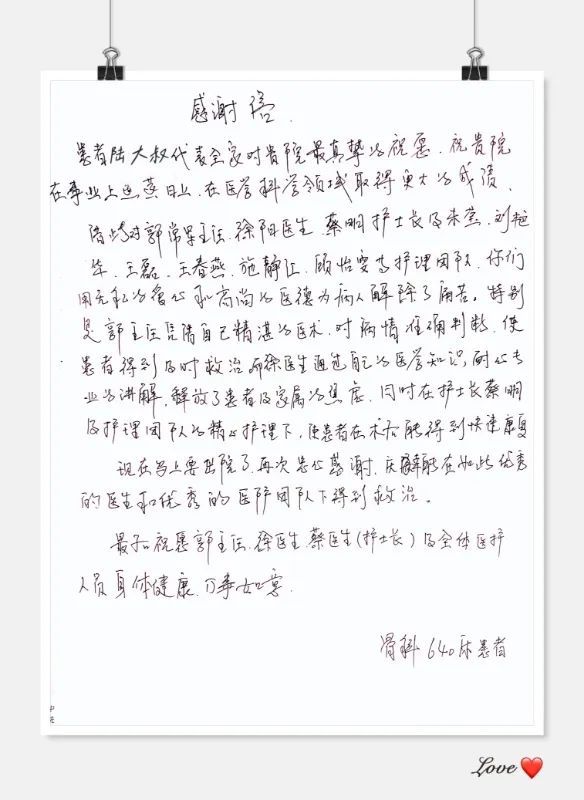 感谢信.
患者陆大叔代表全家对贵院最真挚的祝愿.祝贵院
在事业上蒸日上.在医学科学领域取得更大的成绩.
借此对郭常军主任.徐阳医生.蔡明护士长及朱莹.刘艳
华.王磊.王春燕.施静江.顾怡雯等护理团队.你们
用无私的奉心和高尚的医德为病人解除了痛苦.特别
是郭主任凭借自己精湛的医术.对病情准确判断.使
患者得到及时救治.而徐医生通过自己的医学知识,耐心专
业的讲解,释放了患者及家属的焦虑.同时在护士长蔡明
及护理团队的精心护理下,使患者在术后能得到快速康复
现在马上要出院了.再次忠心感谢.庆能在如此优秀
的医生和优秀的医护团队下得到救治。
最后祝愿郭主任.徐医生.蔡医生(护士长)及全体医护
人员身体健康.万事如意.
骨科 640床患者
Love